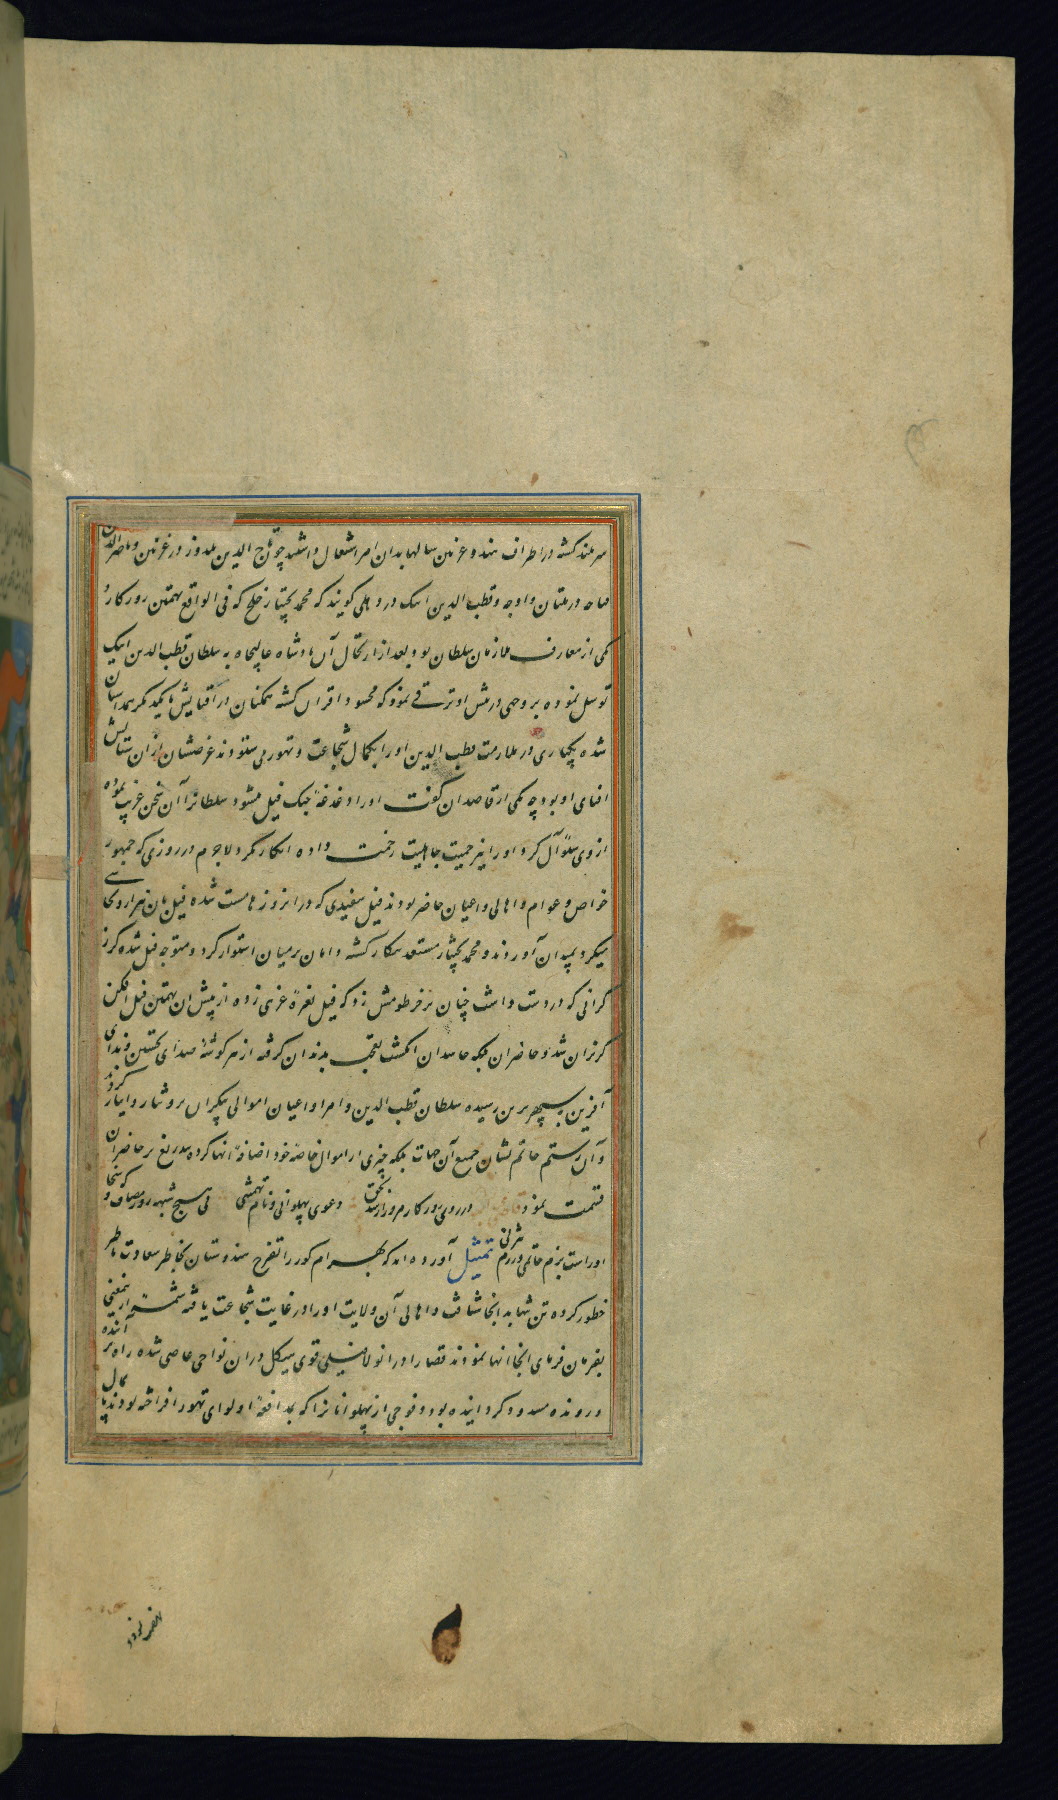 سربلند کشته در اطراف هند و غزنین سالها بدان امر اشتغال داشتند چون تاج الدین یلدوز در غزنین و ناصر الدین
قباجه در ملتان و اوچه و قطب الدین ایبک در دهلی کویند که محمد بختیار خلج که فی الواقع تهمتن روزکار و
یکی از معارف ملازمان سلطان بود بعد از ارتحال آن پادشاه عالیجاه به سلطان قطب الدین ایبک
توسل نموده بروجهی در پیش او ترقی نمود که محسود اقران کشته همکنان در افنایش با یکدیکر همداستان
شده یکباری در ملازمت قطب الدین او را بکمال شجاعت و تهور می ستودند غرضشان از ان ستایش
افنای او بود چه یکی از قاصدان کفت او را دغدغه جنک فیل میشود سلطان را آن سخن غریب نموده
از وی سؤال کرد او را نیز حمیت جاهلیت رخصت نداده انکار نکرد لاجرم در روزی که جمهور
خواص و عوام و اهالی و اعیان حاضر بودند فیل سفیدی که در انروزها مست شده فیل بان
میکرد بمیدان آوردند و محمد بختیار مستعد پیکار کشته دامان بر میان استوار کرد و متوجه فیل شده کرز
کرانی که در دست داشت چنان بر خرطومش زد که فیل نعره عربی زده از پیش ان تهمتن فیل افکن
کریزان شد و حاضران بلکه حاسدان انکشت تعجب بدندان کرفته از هر کوشه صدای تحسین و ندای
آفرین به سپهر برین رسیده سلطان قطب الدین و امرا و اعیان اموالی بیکران برو نثار و ایثار کردند
و آن رستم حاتم نشان جمیع آن جهات بلکه چیزی از اموال خاصه خود اضافه انها کرده بیدریغ بر حاضران
قسمت نمود در روی بزور کارم ورزارسد بحق دعوی پهلوانی و نام تهمتنی بی هیچ شبهه روز مصاف و
اوراست بزم حاتمی و رزم تمثیل آورده اند که بهرام کور را تفرج هندوستان بخاطر سعادت ماطر
خطور کرده تن تنها بدانجا شتافت و اهالی آن ولایت او را در غایت شجاعت یافته شمه از ینمعنی
بفرمان فرمای انجا انها نمودند قضا را در انولا فیلی قوی هیکل در ان نواحی عاصی شده راه بر آینده
و رونده مسدود کردانیده بود و فوجی از پهلوانان را که بمدافعه او لوای تهور افراخته بودند پایمال